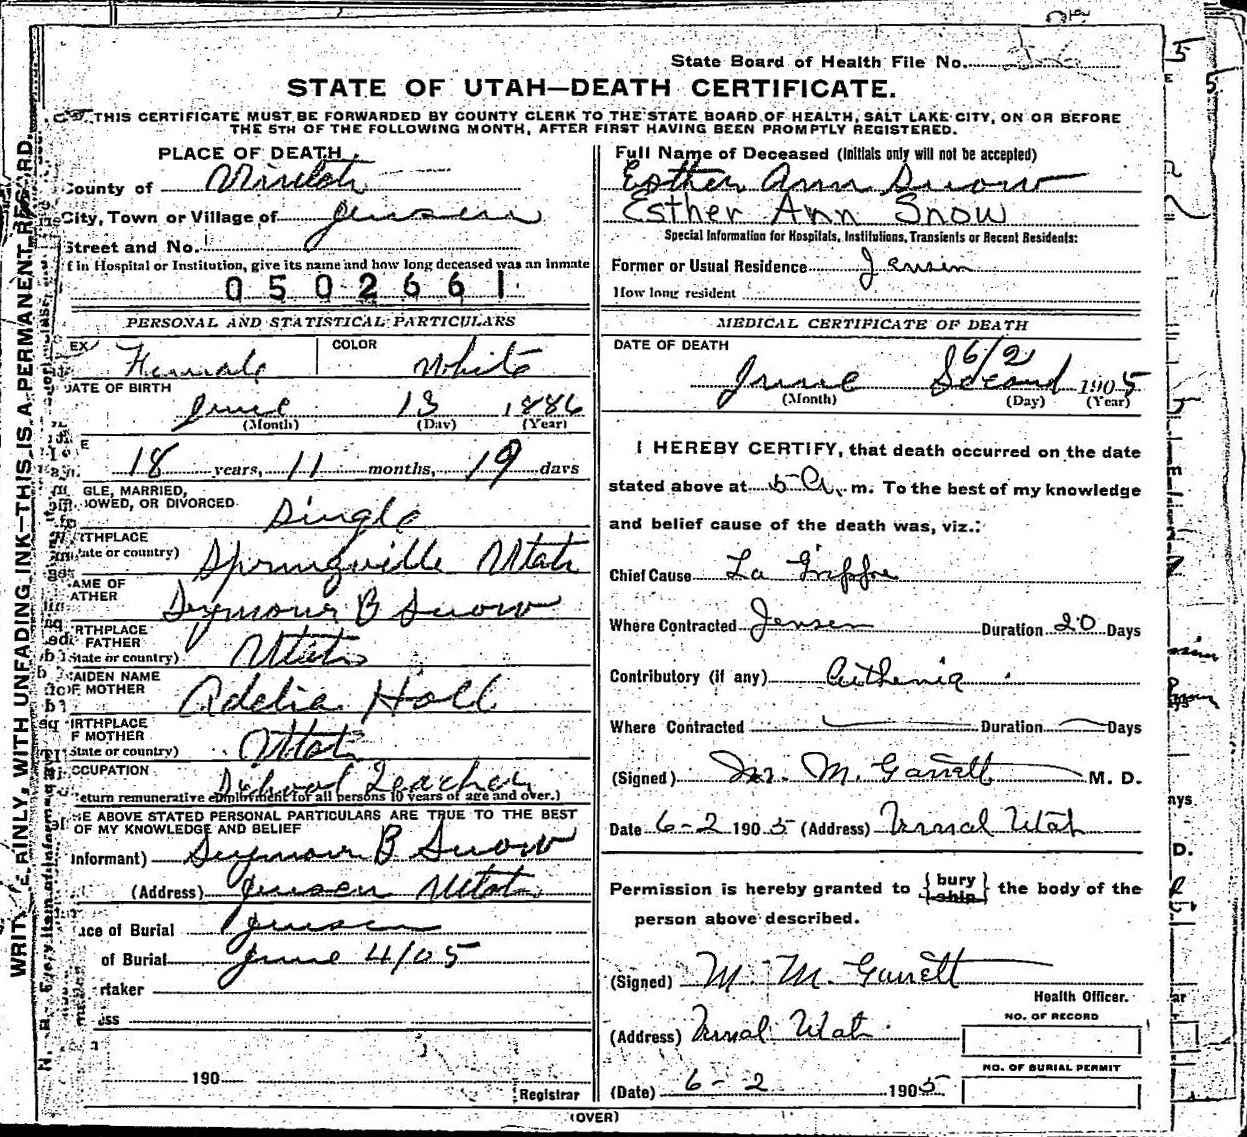 State Board of Health File No.
STATE OF UTAH—DEATH CERTIFICATE.
THIS CERTIFICATE MUST BE FORWARDED BY COUNTY CLERK TO THE STATE BOARD OF HEALTH, SALT LAKE CITY, ON OR BEFORE
THE 5TH OF THE FOLLOWING MONTH, AFTER FIRST HAVING BEEN PROMPTLY REGISTERED.
PLACE OF DEATH
County of
City, Town or Village of Jensen
Street and No.
f in Hospital or Institution, give its name and how long deceased was an inmate
0502661
PERSONAL AND STATISTICAL PARTICULARS
EX Female COLOR White
DATE OF BIRTH
June 13 1886
(Month) (Day) (Year)
E
18 years, 11 months, 19 days
GLE, MARRIED,
OWED, OR DIVORCED
Single
RTHPLACE
ate or country) Springville Utah
AME OF
ATHER Seymour B Snow
RTHPLACE
FATHER
State or country) Utah
AIDEN NAME
OF MOTHER Adelia Hall
IRTHPLACE
F MOTHER
State or country) Utah
CCUPATION School Teacher
eturn remunerative employment for all persons 10 years of age and over.)
E ABOVE STATED PERSONAL PARTICULARS ARE TRUE TO THE BEST
OF MY KNOWLEDGE AND BELIEF
Informant) Seymour B Snow
(Address) Jensen Utah
ace of Burial Jensen
of Burial June 4/05
rtaker
ess
190
Registrar
Full Name of Deceased (Initials only will not be accepted)
Esther Ann Snow
Esther Ann Snow
Special Information for Hospitals, Institutions, Transients or Recent Residents:
Former or Usual Residence Jensen
How long resident
MEDICAL CERTIFICATE OF DEATH
DATE OF DEATH
6/2
June Second 1905
(Month) (Day) (Year)
I HEREBY CERTIFY, that death occurred on the date
stated above at 5 A. m. To the best of my knowledge
and belief cause of the death was, viz.:
Chief Cause La Grippe
Where Contracted Jensen Duration 20 Days
Contributory (if any)
Where Contracted Duration Days
(Signed) M. Garrett M. D.
Date 6-2 1905 (Address) Vernal Utah
Permission is hereby granted to {bury ship} the body of the
person above described.
(Signed) M. M. Garrett
Health Officer.
(Address) Vernal Utah
NO. OF RECORD
(Date) 6-2 1905
NO. OF BURIAL PERMIT
(OVER)
WRITE PLAINLY, WITH UNFADING INK—THIS IS A PERMANENT RECORD.